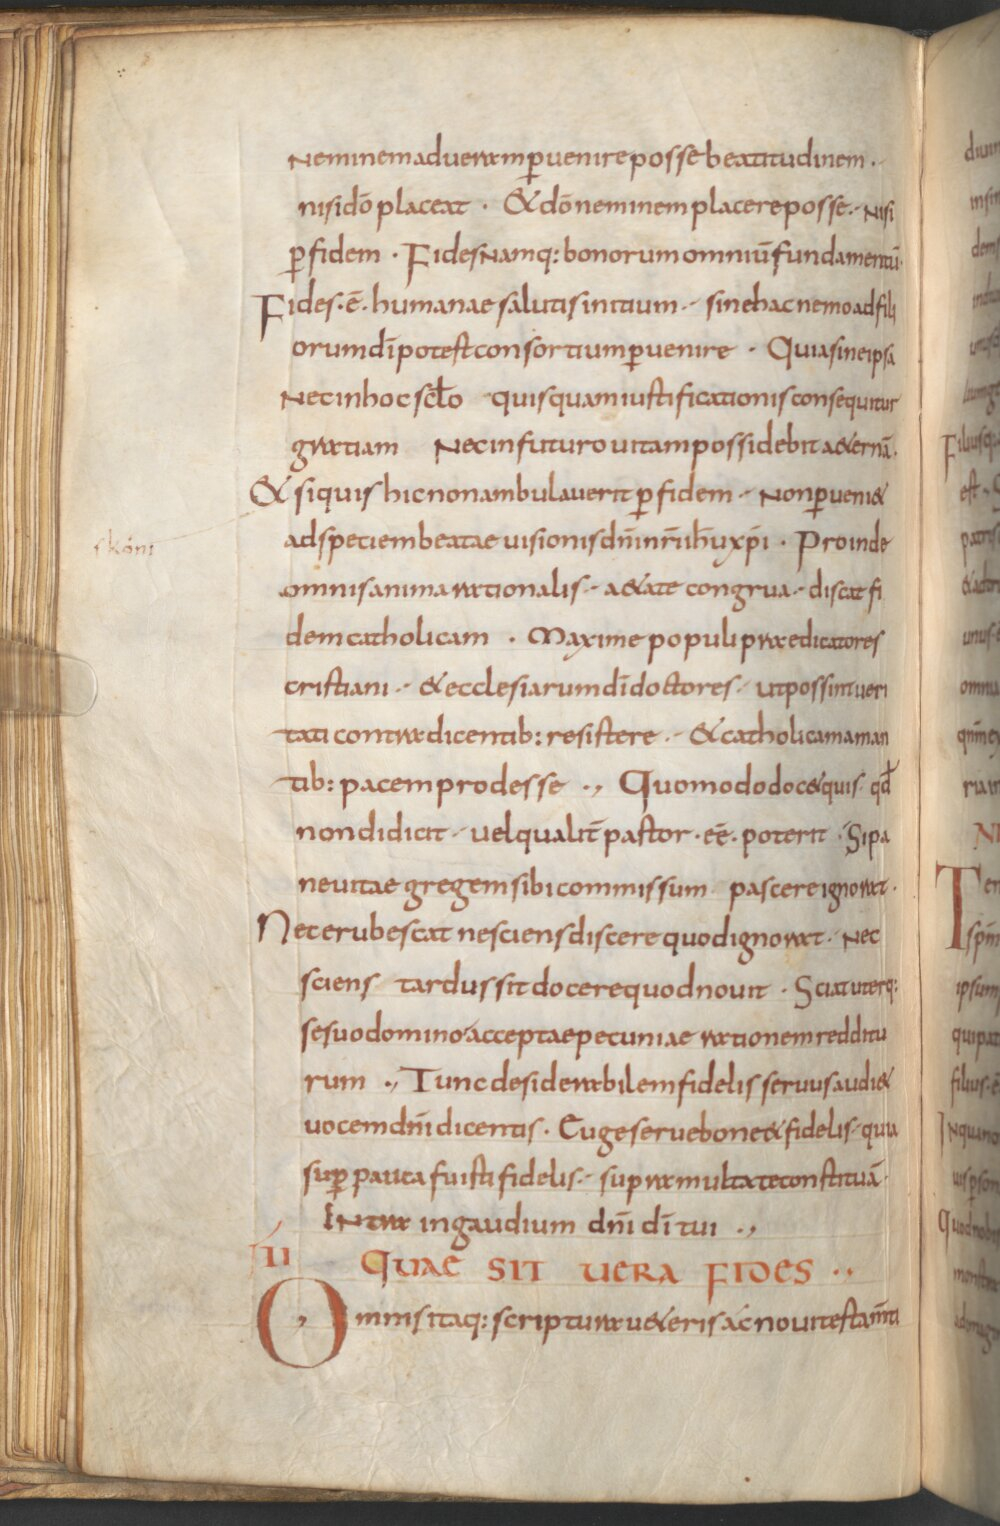 neminem ad ueram ꝑuenire posse beatitudinem ·
nisi dō placeat · & dō neminem placere posse · nisi
ꝑ fidem · Fides namq: bonorum omniū fundamentū ·
Fides · ē · humanae salutis initium · sine hac nemo ad fili
orum dī potest consortium ꝑuenire · Quia sine ipsa
nec in hoc scƚo quisquam iustificationis consequitur
gratiam nec in futuro uitam possidebit a&ernā ·
& si quis hic non ambulauerit ꝑ fidem · non ꝑueni&
skóni
ad speciem beatae uisionis dn̄i nr̄i ih̄u xp̄i · Proinde
omnis anima rationalis · a&ate congrua · discat fi
dem catholicam · Maxime populi praedicatores
cristiani · & ecclesiarum dī doctores · ut possint ueri
tati contradicentib: resistere · & catholicam aman
tib: pacem prodesse ., Quomodo doc& quis · qđ
non didicit · uel qualit̄ pastor · eē · poterit · Si pa
ne uitae gregem sibi commissum pascere ignorat ·
Nec erubescat nesciens discere quod ignorat · nec
sciens tardus sit docere quod nouit · Sciat uterq:
se suo domino acceptae pecuniae rationem redditu
rum ., Tunc desiderabilem fidelis seruus audi&
uocem dn̄i dicentis · Euge serue bone & fidelis · quia
suꝑ pauca fuisti fidelis · supra multa te constituā ·
Intra in gaudium dn̄i dī tui .,
II QUAE SIT UERA FIDES ··
Omnis itaq: scriptura u&eris ac noui testam̄ti